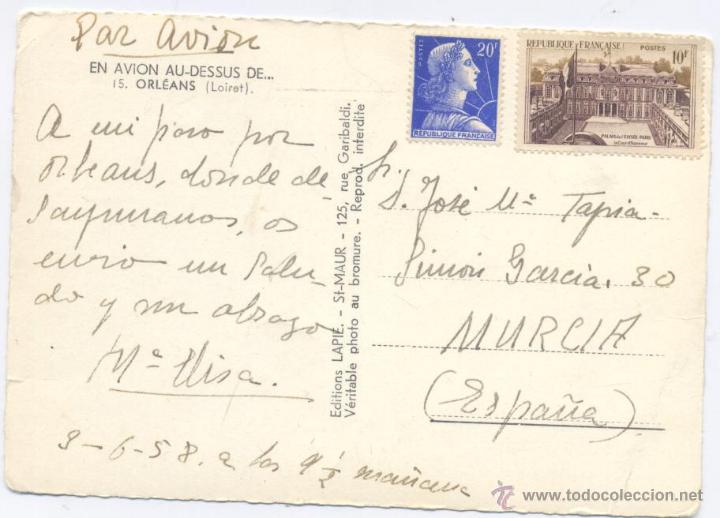 Par Avion
EN AVION AU-DESSUS DE...
15. ORLÉANS (Loiret).
A mi paso por
Orleans, donde de
os
envio un Salu-
do y un abrazo
Mª Elisa.
9-6-58. a las 9½ mañana
Editions LAPIE. - St-MAUR - 125, rue Garibaldi.
Véritable photo au bromure. - Reprod. interdite
POSTES
20F
RÉPUBLIQUE FRANÇAISE
RÉPUBLIQUE FRANÇAISE
POSTES
10F
PALAIS DE L'ÉLYSÉE. PARIS
la Cour d'honneur
Sr.
D. José Mª Tapia.
Simon Garcia. 30
MURCIA
(España)
© www.todocoleccion.net